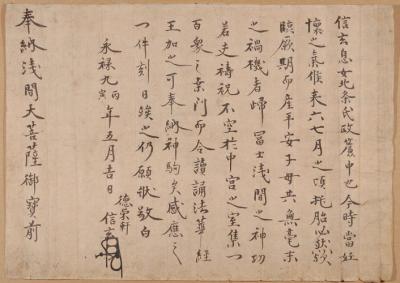 信玄息女北条氏政簾中也今時當妊
懐之気候来六七月之頃托胎必然
臨厥期而産平安子母共無毫末
之禍機者帰冨士浅間之神功
若丈祷祝不空於中宮之室集一
百衆之桑門而令讀誦法華経
王加之可奉納神駒矣感應之
一件刻日竢之仍願状敬白
永禄九丙寅年五月吉日
徳栄軒
信玄
奉納浅間大菩薩御寳前